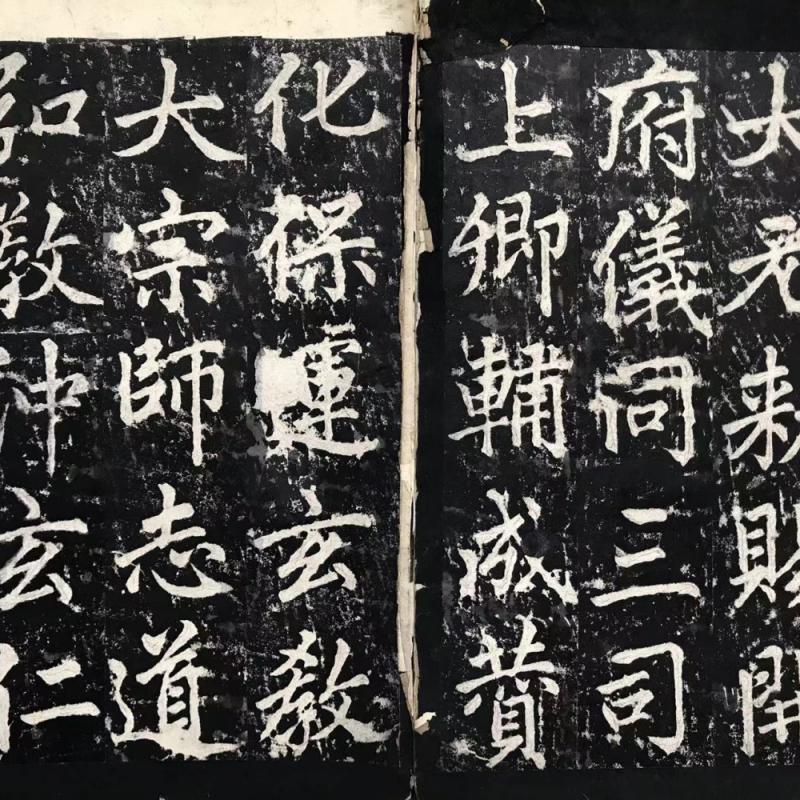 大元敕賜開
府儀同三司
上卿輔成賛
化保運玄教
大宗師志道
弘教沖玄仁